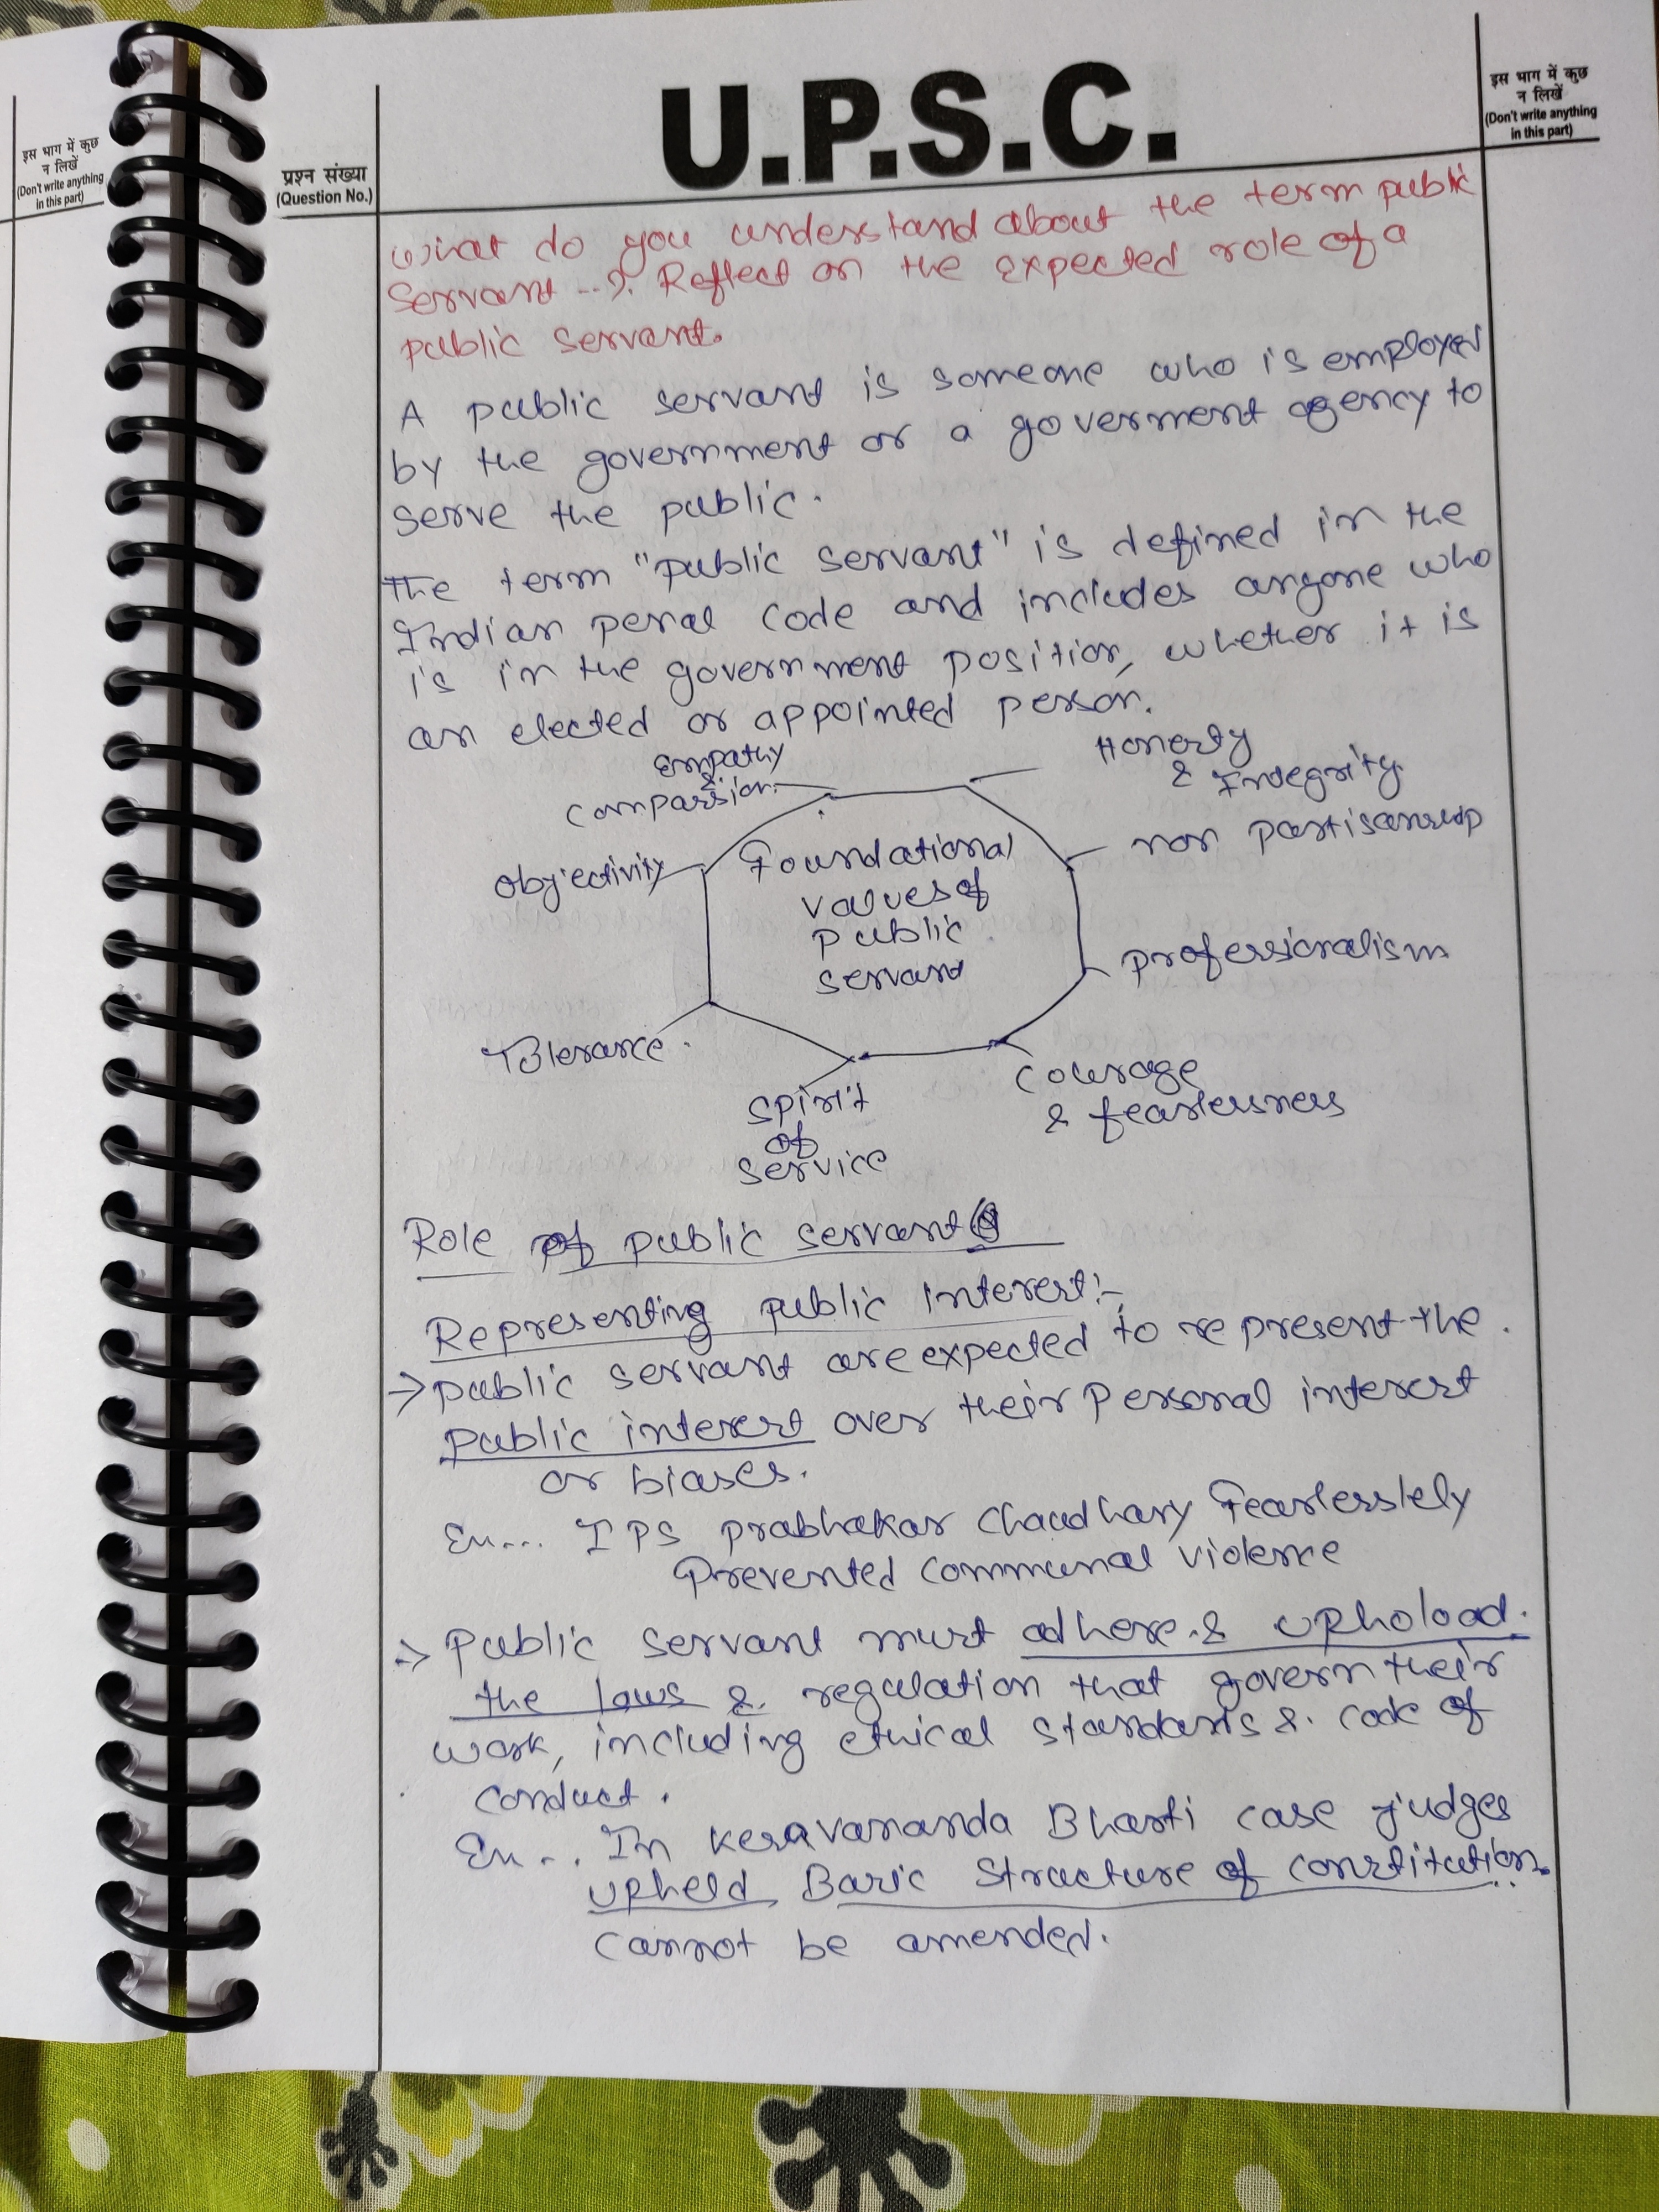 इस भाग में कुछ
न लिखें
(Don't write anything
in this part)
प्रश्न संख्या
(Question No.)
U.P.S.C.
इस भाग में कुछ
न लिखें
(Don't write anything
in this part)
What do you understand about the term public
servant...?. Reflect on the expected role of a
public servant.
A public servant is someone who is employed
by the government or a goverment agency to
serve the public.
The term "public servant" is defined in the
Indian penal code and includes anyone who
is in the government position, whether it is
an elected or appointed person.
Empathy
&
compassion.
Honesty
& Integrity.
Objectivity
Foundational
values of
public
servant
non partisanship
professionalism
Tolerance.
Spirit
of
service
Courage
& fearlessness
Role of public servant
Representing public interest:-
→ public servant are expected to represent the
public interest over their personal interest
or biases.
Ex... IPS prabhakar Chaudhary Fearlesslely
Prevented communal violence
→ Public servant must adhere & uphoload
the laws & regulation that govern their
work, including ethical standards & code of
conduct.
Ex... In Kesavananda Bharti case judges
upheld Basic structure of constitution.
cannot be amended.